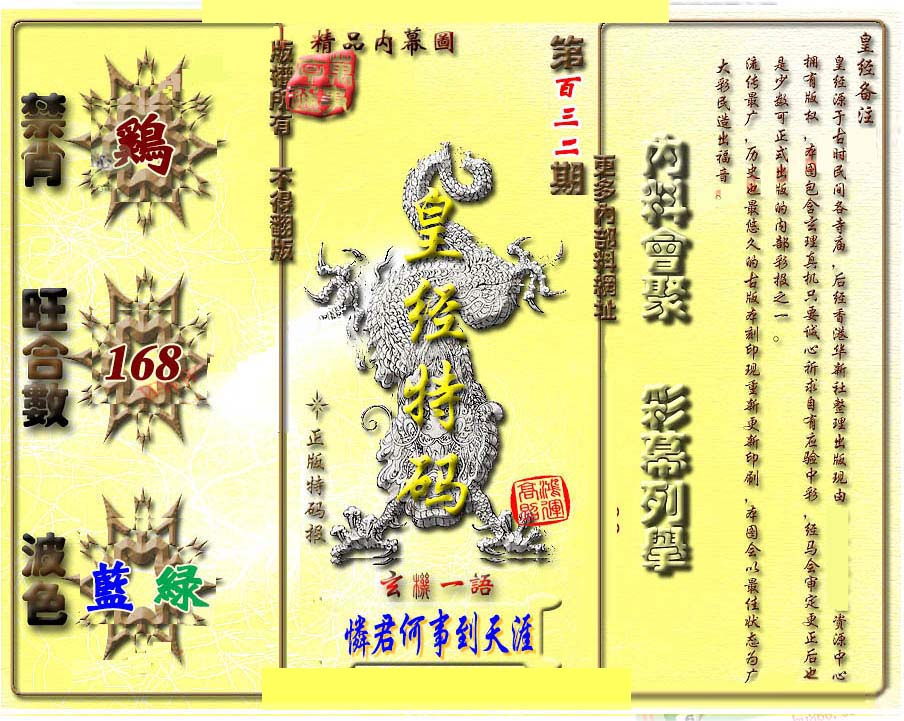 精品内幕圖
版權所有 不得翻版
第百三二期
更多內部料網址
禁肖
鷄
旺合數
168
波色
藍 綠
皇经特码
正版特码报
鴻運高照
玄機一語
憐君何事到天涯
内料會聚
彩幕列舉
皇经备注
皇经源于古时民间各寺庙,后经香港华新社整理出版现由 资源中心
拥有版权,本图包含玄理真机只要诚心祈求自有应验中彩,经马会审定更正后也
是少数可正式出版的内部彩报之一。
流传最广,历史也最悠久的古版本刻印现重新更新印刷,本图会以最佳状态为广
大彩民造出福音